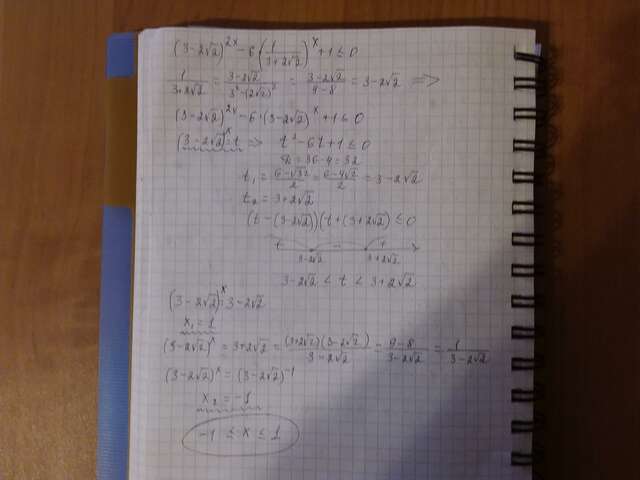 (3-2√2)^2x - 6(1/(3+2√2))^x + 1 ≤ 0
1/(3+2√2) = (3-2√2)/(3²-(2√2)²) = (3-2√2)/(9-8) = 3-2√2 =>
(3-2√2)^2x - 6·(3-2√2)^x + 1 ≤ 0
(3-2√2)^x = t => t² - 6t + 1 ≤ 0
D = 36-4 = 32
t₁ = (6-√32)/2 = (6-4√2)/2 = 3-2√2
t₂ = 3+2√2
(t-(3-2√2))(t+(3+2√2) ≤ 0
+ - +
3-2√2 3+2√2
3-2√2 ≤ t ≤ 3+2√2
(3-2√2)^x = 3-2√2
x₁ = 1
(3-2√2)^x = 3+2√2 = (3+2√2)(3-2√2)/(3-2√2) = (9-8)/(3-2√2) = 1/(3-2√2)
(3-2√2)^x = (3-2√2)^-1
x₂ = -1
-1 ≤ x ≤ 1